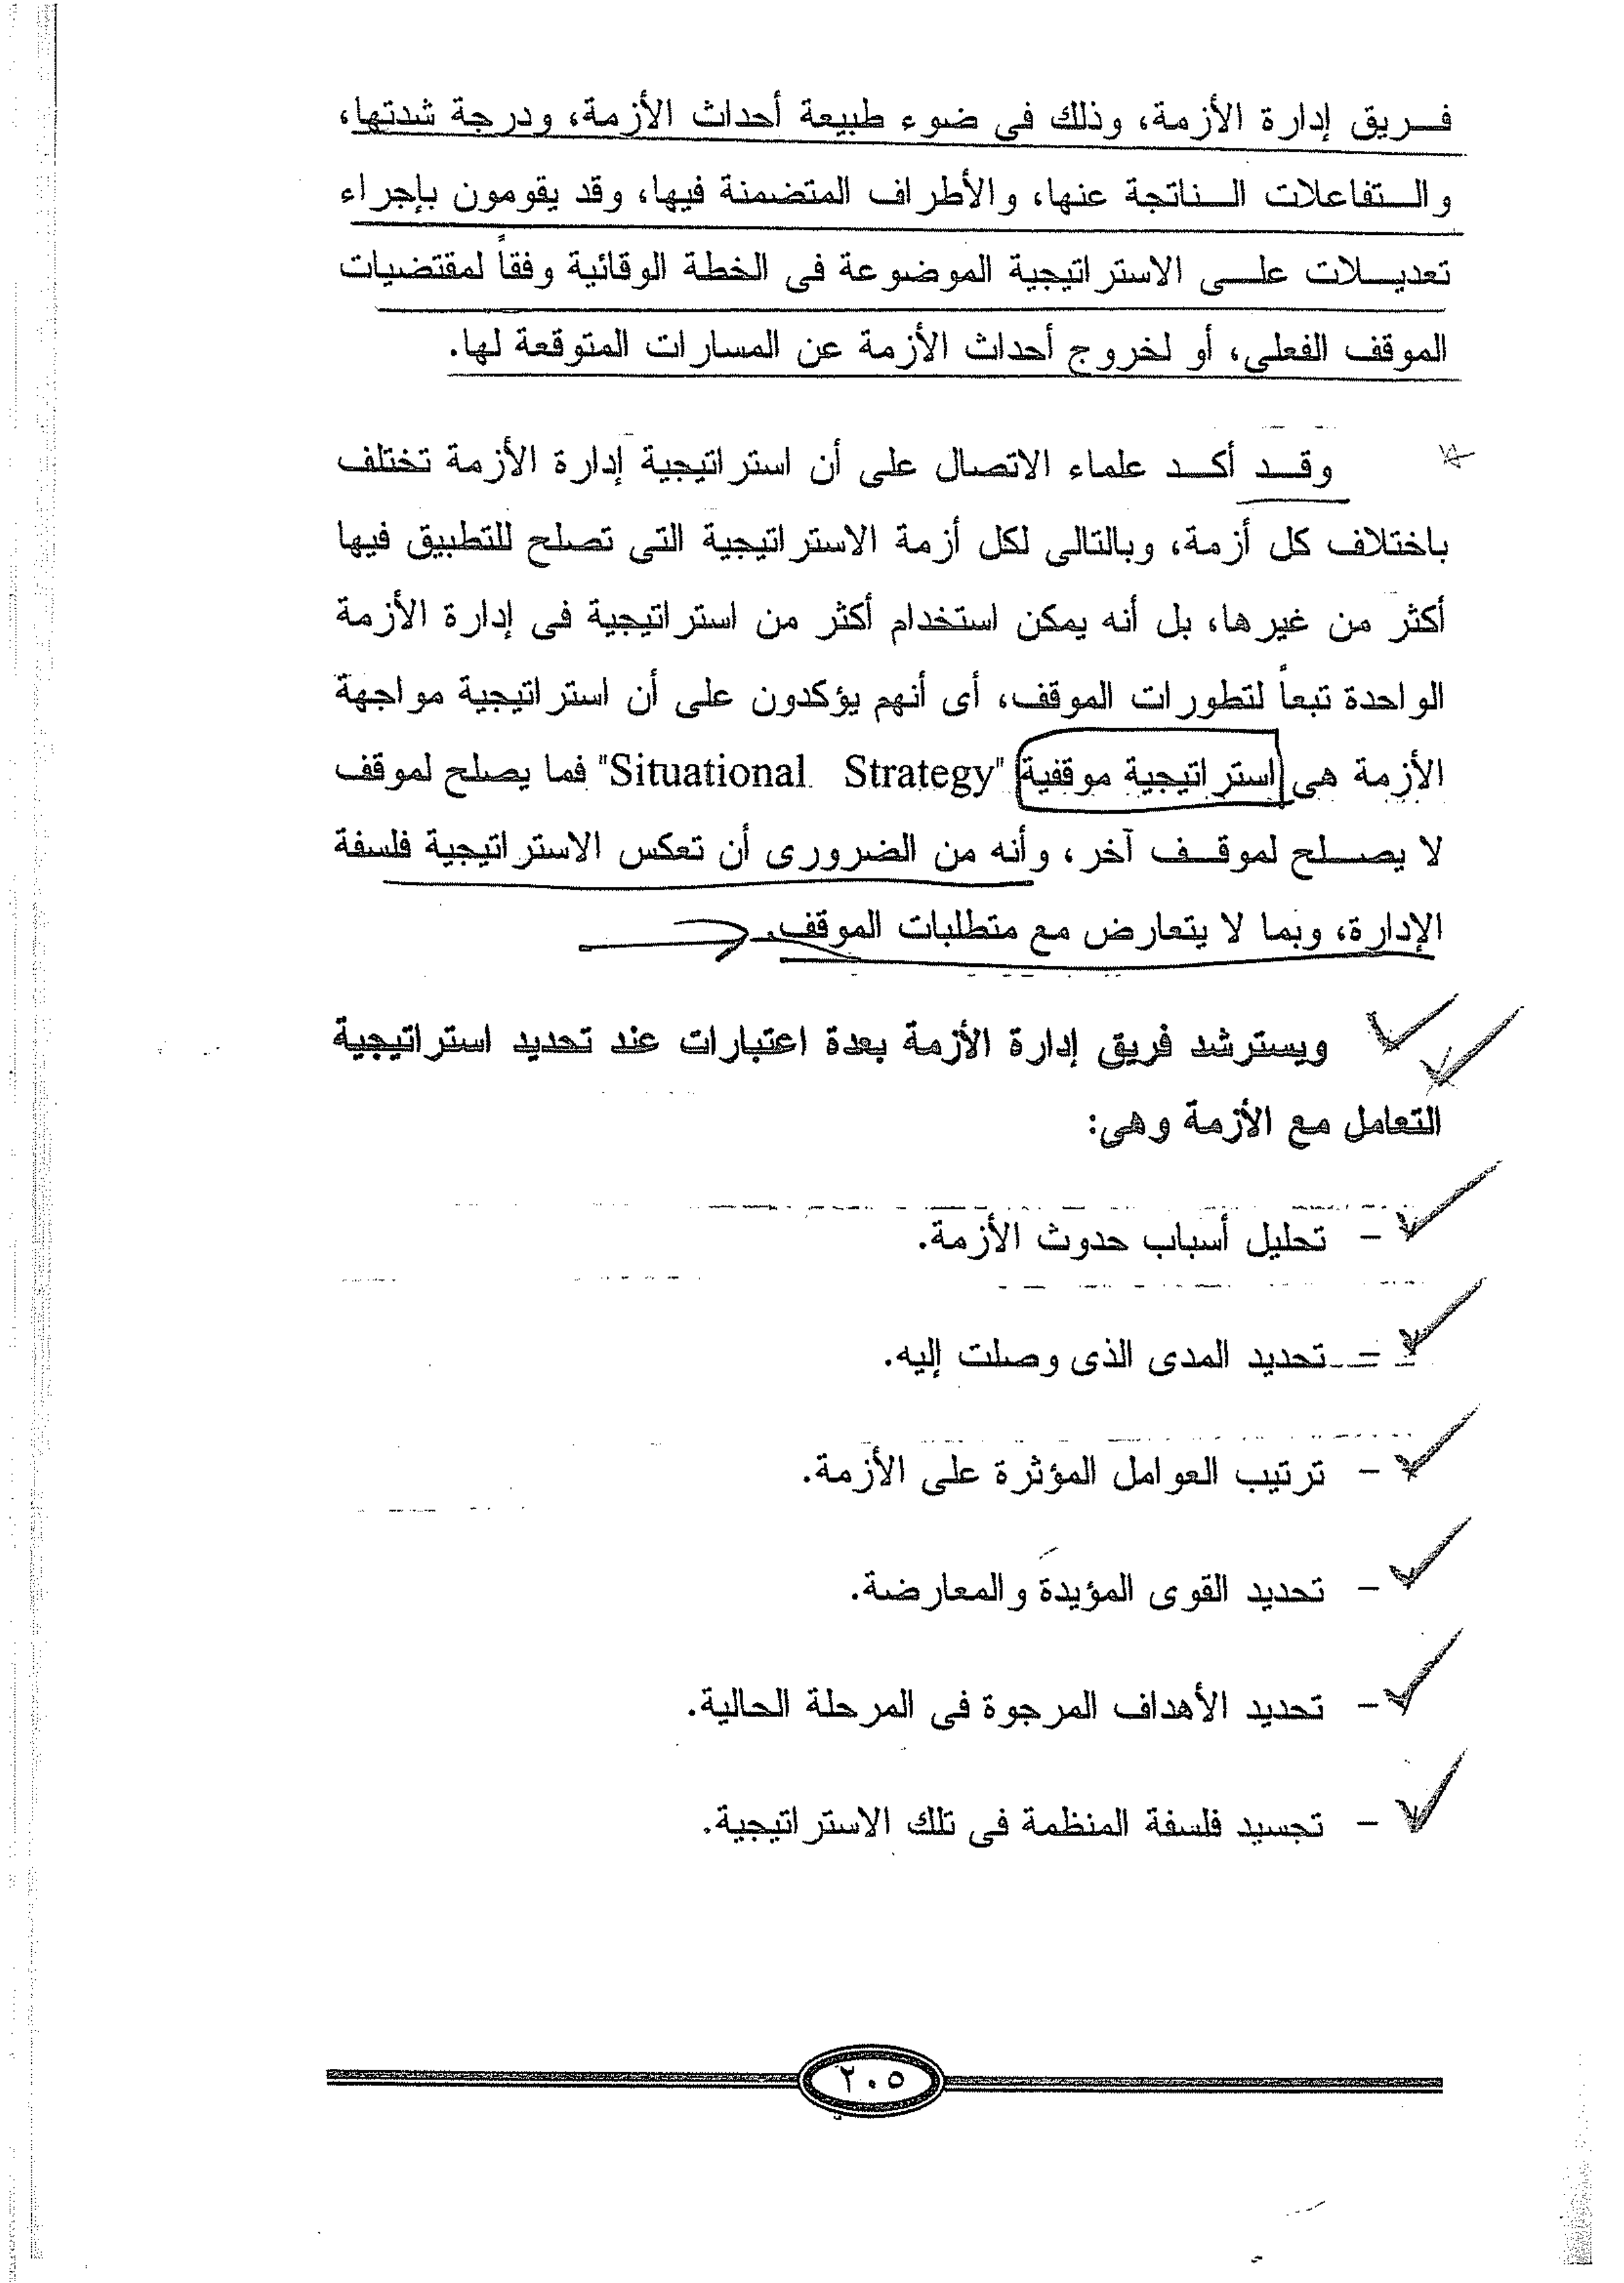 فريق إدارة الأزمة، وذلك فى ضوء طبيعة أحداث الأزمة، ودرجة شدتها،
والتفاعلات الناتجة عنها، والأطراف المتضمنة فيها، وقد يقومون بإجراء
تعديلات على الاستراتيجية الموضوعة فى الخطة الوقائية وفقاً لمقتضيات
الموقف الفعلى، أو لخروج أحداث الأزمة عن المسارات المتوقعة لها.
وقد أكد علماء الاتصال على أن استراتيجية إدارة الأزمة تختلف
باختلاف كل أزمة، وبالتالى لكل أزمة الاستراتيجية التى تصلح للتطبيق فيها
أكثر من غيرها، بل أنه يمكن استخدام أكثر من استراتيجية فى إدارة الأزمة
الواحدة تبعاً لتطورات الموقف، أى أنهم يؤكدون على أن استراتيجية مواجهة
الأزمة هى استراتيجية موقفية "Situational Strategy" فما يصلح لموقف
لا يصلح لموقف آخر، وأنه من الضرورى أن تعكس الاستراتيجية فلسفة
الإدارة، وبما لا يتعارض مع متطلبات الموقف.
ويسترشد فريق إدارة الأزمة بعدة اعتبارات عند تحديد استراتيجية
التعامل مع الأزمة وهى:
- تحليل أسباب حدوث الأزمة.
- تحديد المدى الذى وصلت إليه.
- ترتيب العوامل المؤثرة على الأزمة.
- تحديد القوى المؤيدة والمعارضة.
- تحديد الأهداف المرجوة فى المرحلة الحالية.
- تجسيد فلسفة المنظمة فى تلك الاستراتيجية.
٢٠٥